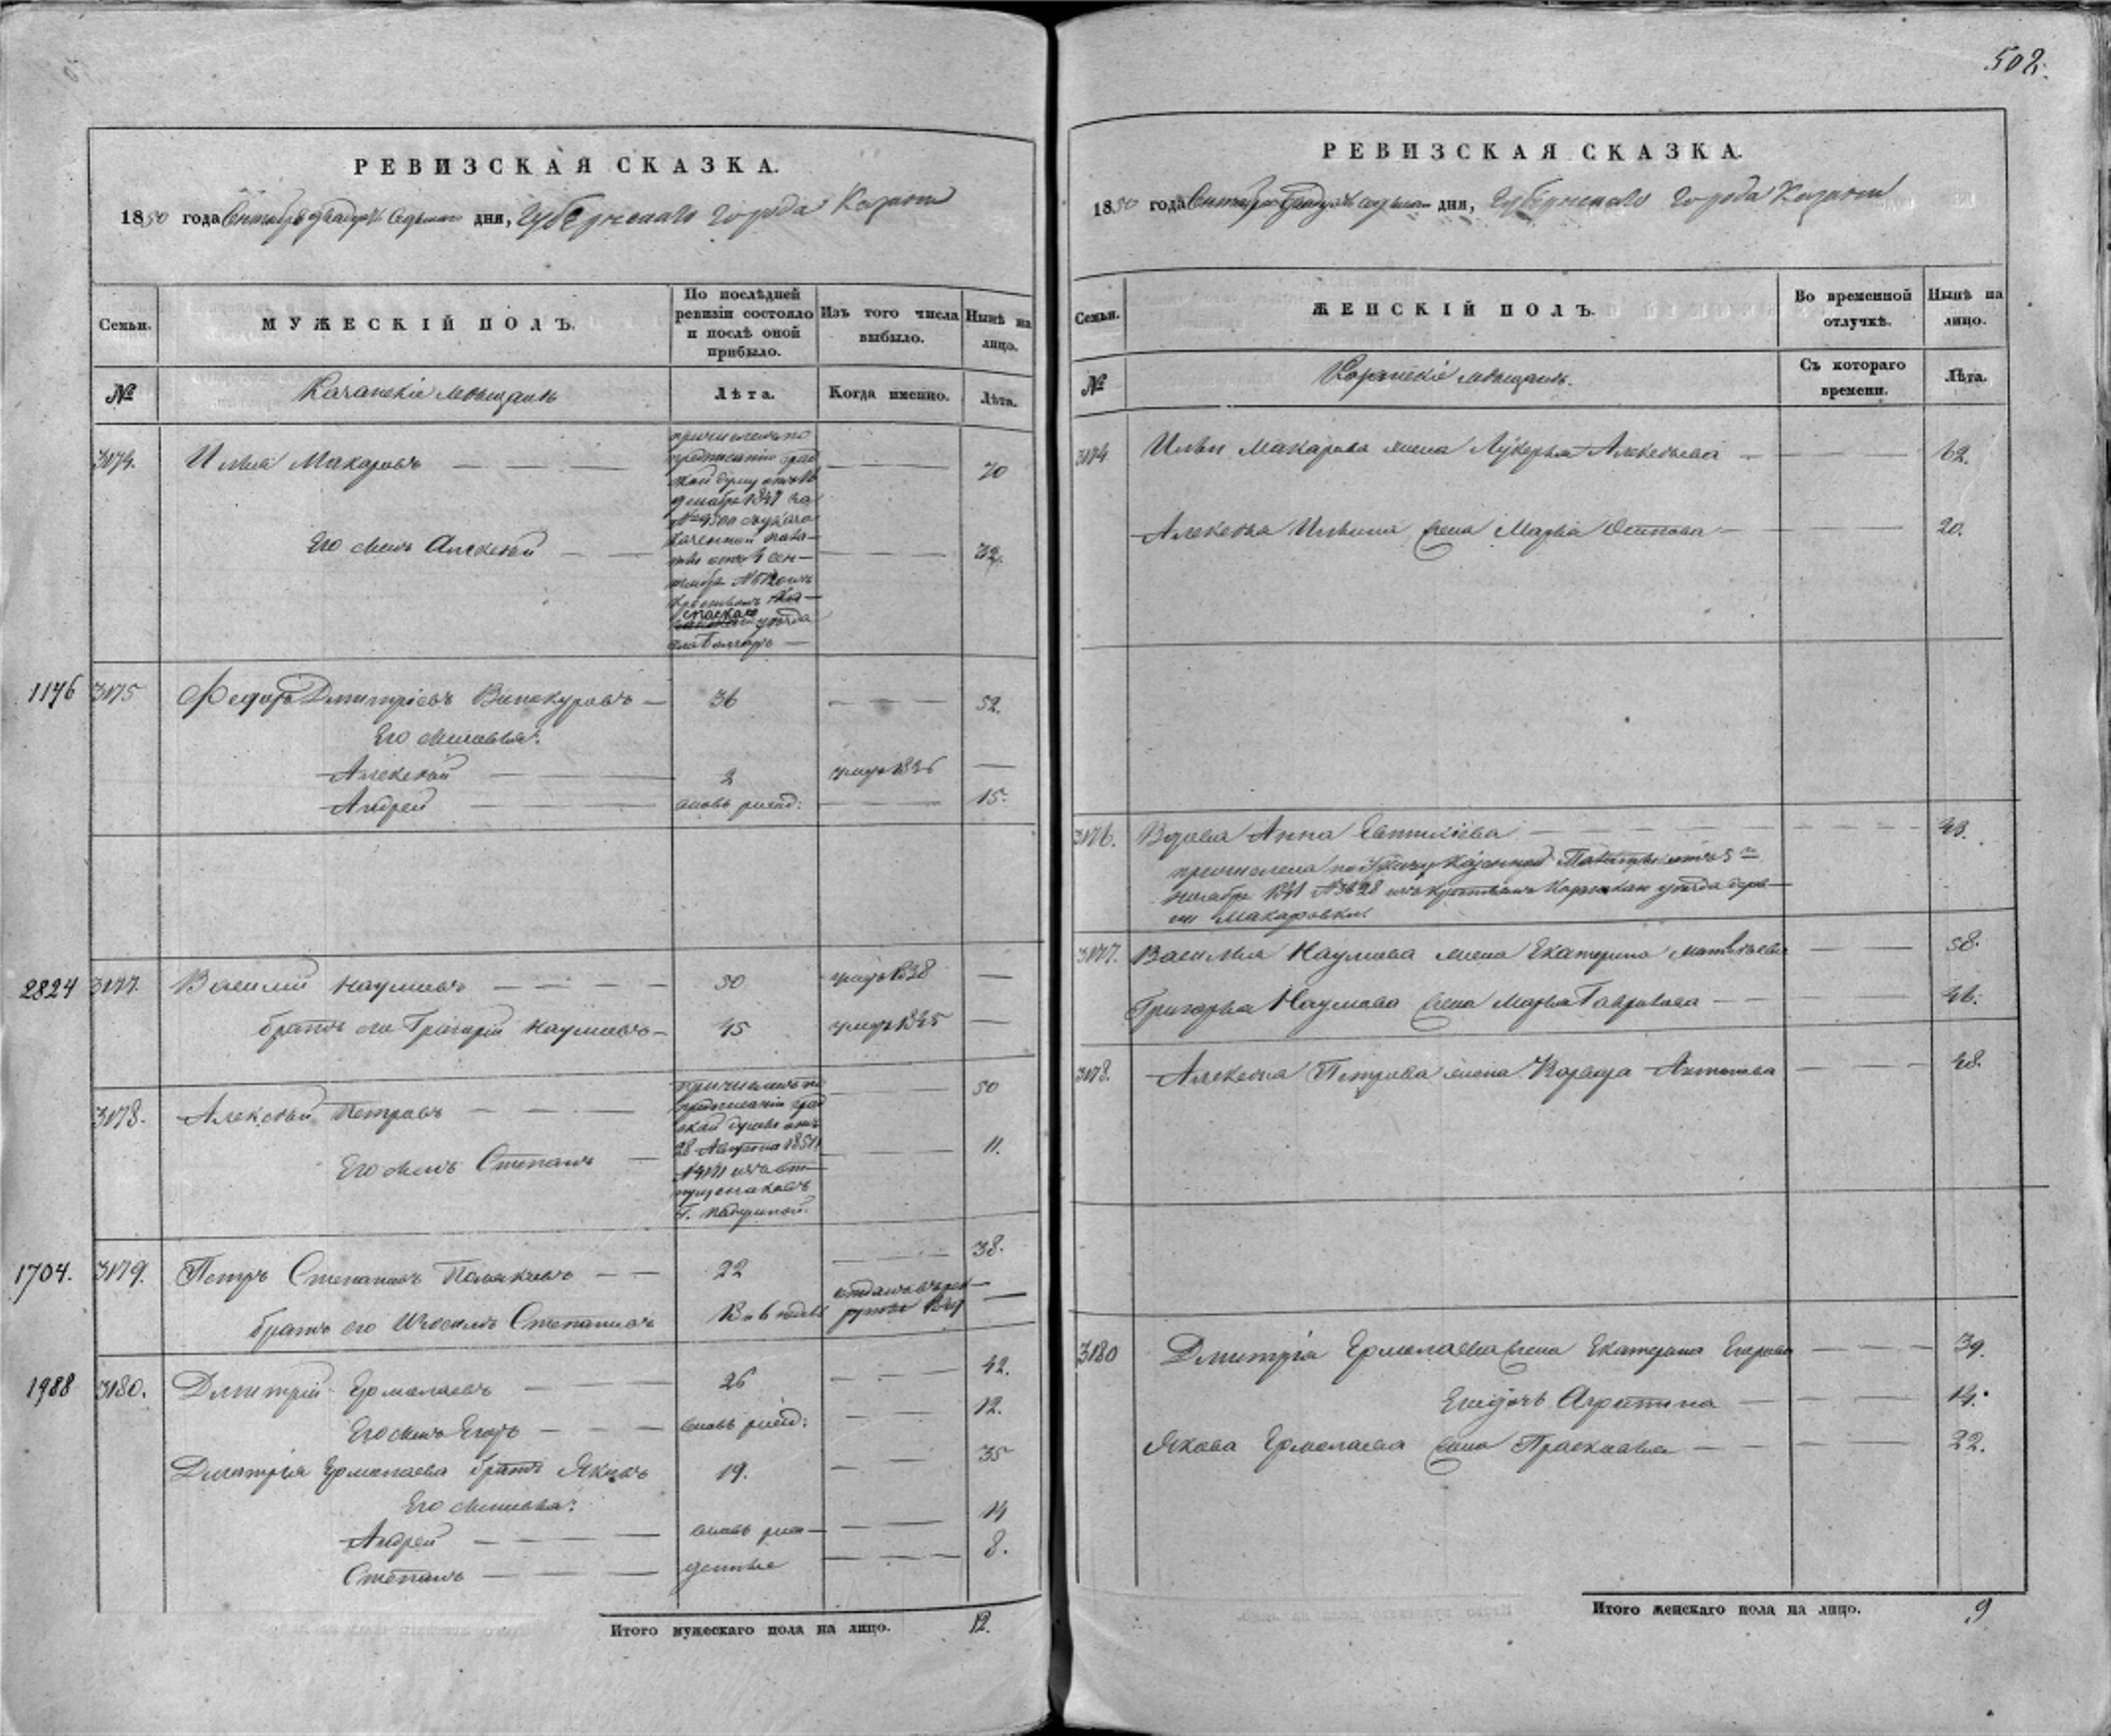 502.
РЕВИЗСКАЯ СКАЗКА.
1850 года Сентября двадцать седьмаго дня, Губернскаго города Казани
Семьи.
МУЖЕСКІЙ ПОЛЪ.
По послѣдней ревизіи состояло и послѣ оной прибыло.
Изъ того числа выбыло.
Нынѣ на лицо.
№
Казанскіе мѣщане
Лѣта.
Когда именно.
Лѣта.
3174. Илья Макаровъ — — — 70
причисленъ по
предписанію град
ской думы отъ 16
декабря 1847 за
Его сынъ Алексѣй — — 32.
казенной пала-
ты отъ 4 сен-
тября №
крестьянъ
спаскаго
уѣзда
1176 3175 Федоръ Дмитріевъ Винокуровъ — 36 — — — 52.
Его сыновья:
Алексѣй — — — 2 умеръ 1836 —
Андрей — — — вновь рожд: — — — 15.
2824 3177. Василій Наумовъ — — — — 50 умеръ 1838 —
братъ его Григорій Наумовъ — 45 умеръ 1845 —
3178. Алексѣй Петровъ — — — 50
причисленъ по
предписанію град
ской думы отъ
28 Августа 1851
Его сынъ Степанъ — 11.
1704. 3179. Петръ Степановъ — — 22 — — — 38.
братъ его Степановъ отданъ въ рек-
руты —
1988 3180. Дмитрій Ермолаевъ — — — 26 — — — 42.
Его сынъ Егоръ — — — вновь рожд: — — — 12.
Дмитрія Ермолаева братъ Яковъ 19. — — 35
Его сыновья:
Андрей — — — — вновь рож- — — — 14
Степанъ — — — — денные — — — 8.
Итого мужескаго пола на лицо. 12.
РЕВИЗСКАЯ СКАЗКА.
1850 года Сентября двадцать седьмаго дня, Губернскаго города Казани
Семьи.
ЖЕНСКІЙ ПОЛЪ.
Во временной отлучкѣ.
Нынѣ на лицо.
№
Казанскіе мѣщане.
Съ котораго времени.
Лѣта.
3174 Ильи Макарова жена Лукерья Алексѣева — — — — 62.
Алексѣя Ильина жена Марья Осипова — — — — 20.
3176. Вдова Анна — — — — — 43.
причислена по Указу Казенной Палаты отъ 5го
1841 № 3628 изъ крестьянъ уѣзда дерев-
ни Макаровки.
3177. Василья Наумова жена Екатерина Матвѣева — — — 58.
Григорья Наумова жена Марья Гаврилова — — — 46.
3178. Алексѣя Петрова жена Варвара Антонова — — — 48.
3180 Дмитрія Ермолаева жена Екатерина Егорова — — — 39.
Ихъ дочь Агрипина — — — — 14.
Якова Ермолаева жена Прасковья — — — — 22.
Итого женскаго пола на лицо. 9